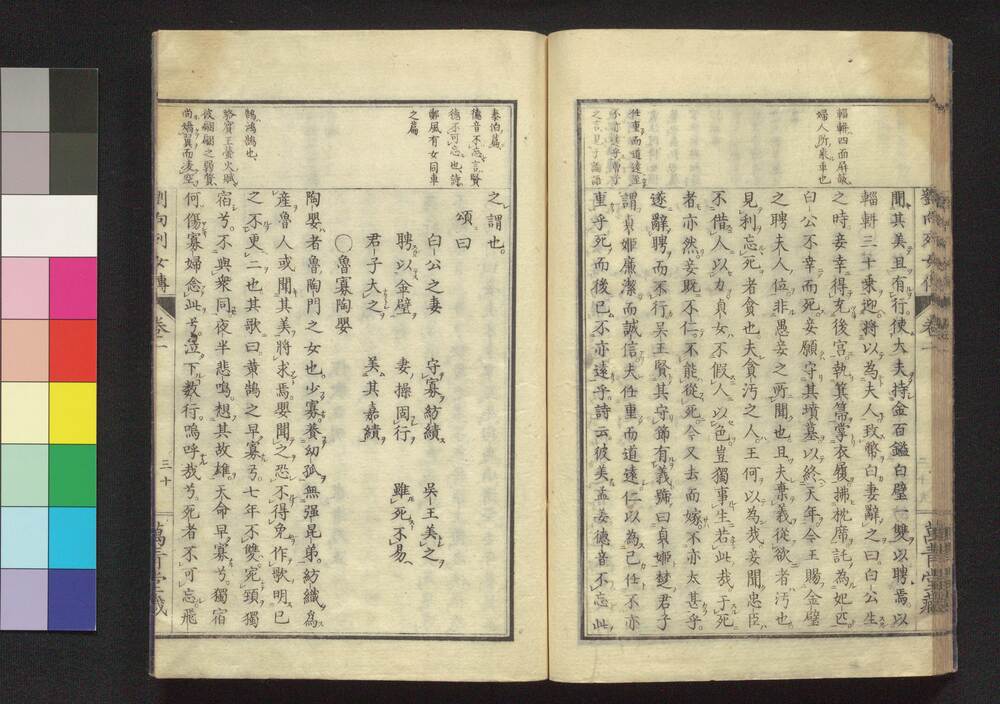 輜軿四面屏蔽
婦人所乘車也
任重而道遠至
不亦遠乎曾子
之言見于論語
聞其美且有行使大夫持金百鎰白璧一雙以聘焉以
輜軿三十乘迎將以為夫人致幣白妻辭之曰白公生
之時妾幸得充後宮執箕箒掌衣履拂枕席託為妃匹
白公不幸而死妾願守其墳墓以終天年今王賜金璧
之聘夫人位非愚妾之所聞也且夫棄義從欲者汚也
見利忘死者貪也夫貪汚之人王何以為哉妾聞忠臣
不借人以力貞女不假人以色豈獨事生若此哉于死
者亦然妾既不仁不能從死今又去而嫁不亦太甚乎
遂辭聘而不行吳王賢其守節有義號曰貞姬楚君子
謂貞姬廉潔而誠信夫任重而道遠仁以為己任不亦
重乎死而後已不亦遠乎詩云彼美孟姜德音不忘此
泰伯篇
德音不忘言賢
德不可忘也詩
鄭風有女同車
之篇
鵠鴻鵠也
駱賓王螢火賦
彼翩翩之弱質
尚矯翼而凌空
之謂也
頌曰
白公之妻 守寡紡績 吳王美之
聘以金璧 妻操固行 雖死不易
君子大之 美其嘉績
○魯寡陶嬰
陶嬰者魯陶門之女也少寡養幼孤無强昆弟紡織為
產魯人或聞其美將求焉嬰聞之恐不得免作歌明己
之不更二也其歌曰黄鵠之早寡兮七年不雙宛頸獨
宿兮不與衆同夜半悲鳴想其故雄天命早寡兮獨宿
何傷寡婦念此兮泣下數行嗚呼哉兮死者不可忘飛
劉向列女傳 卷二 三十 萬青堂藏